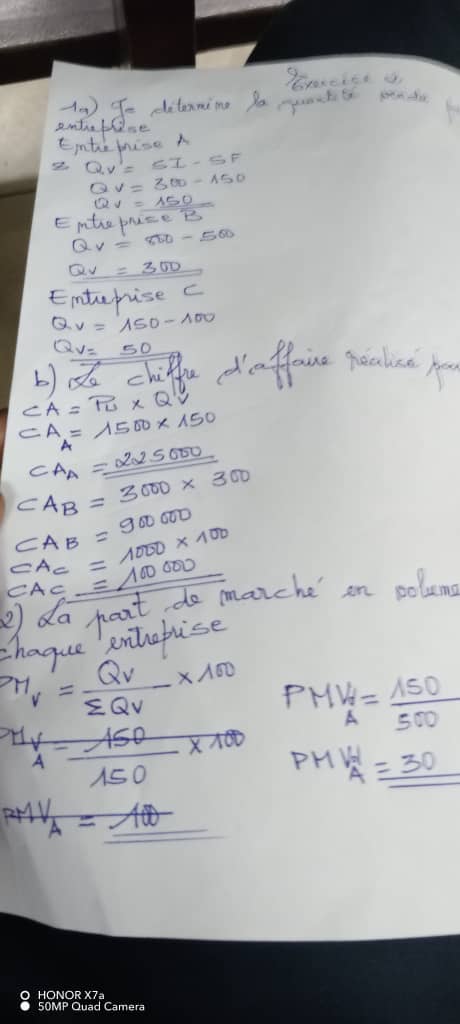 Exercice 2
1a) Je détermine la quantité vendu
entreprise
Entreprise A
QV = SI - SF
QV = 300 - 150
QV = 150
Entreprise B
QV = 800 - 500
QV = 300
Entreprise C
QV = 150 - 100
QV = 50
b) Le chiffre d'affaire réalisé
CA = PU x QV
CA A = 1500 x 150
CA A = 225000
CA B = 3000 x 300
CA B = 900 000
CA C = 1000 x 100
CA C = 100 000
2) La part de marché en volume
chaque entreprise
PMV = QV / ΣQV x 100
PMV A = 150 / 150 x 100
PMV A = 100
PMV A = 150 / 500
PMV A = 30
HONOR X7a
50MP Quad Camera